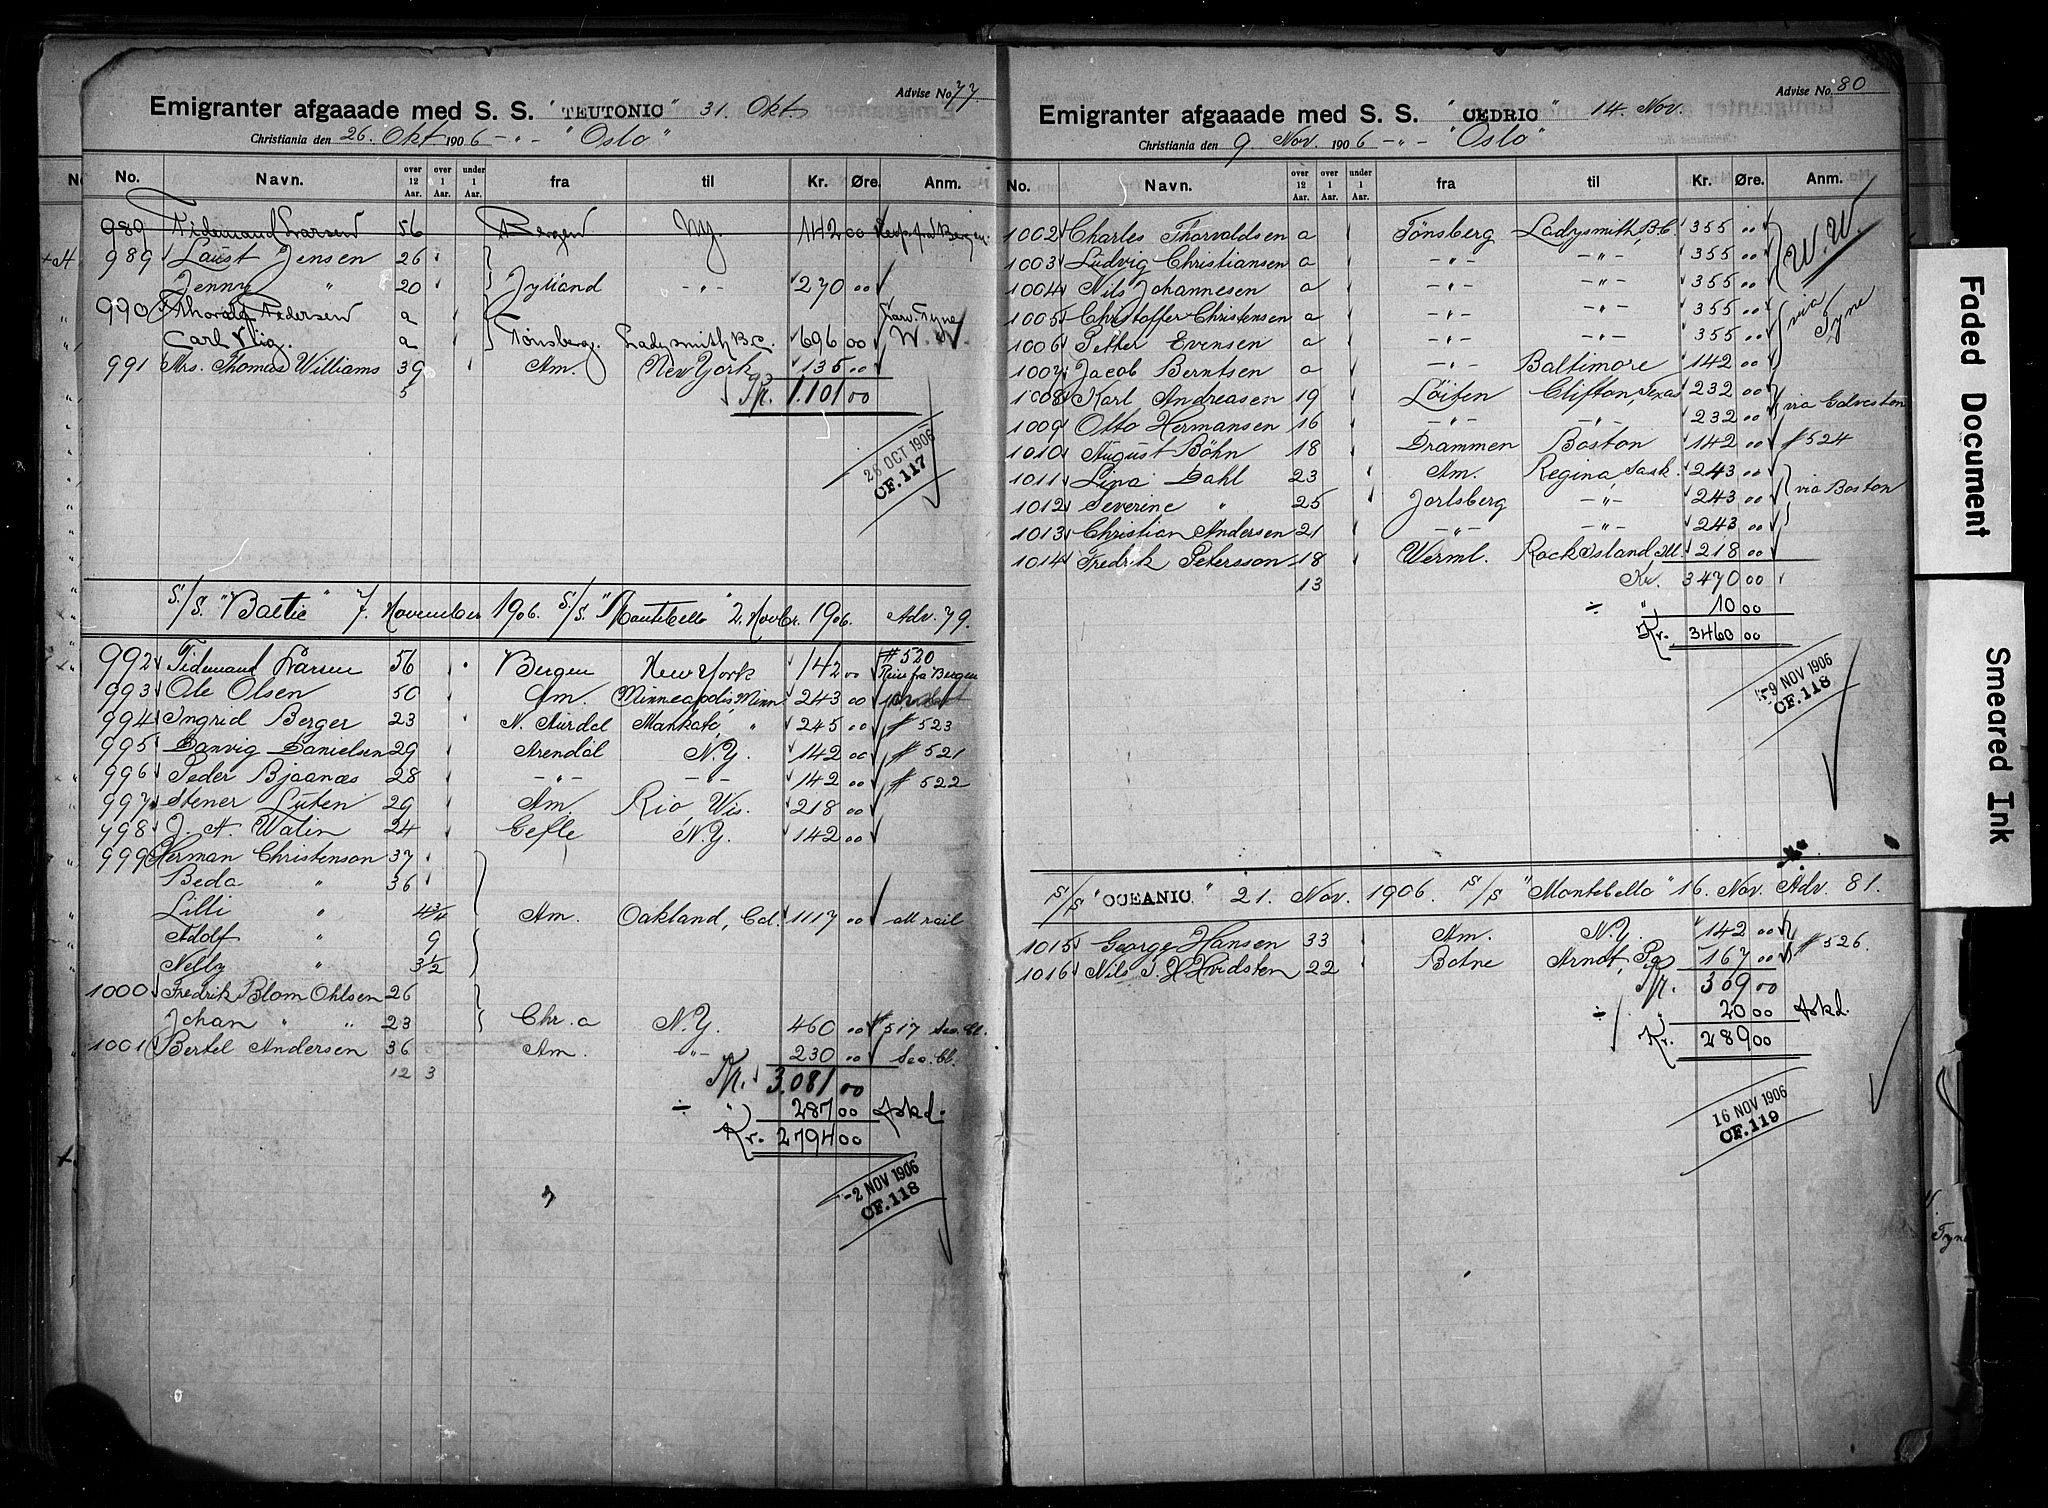 Advise No. 77
Emigranter afgaaade med S. S. "TEUTONIC" 31. Okt.
Christiania den 26. Okt 1906 -"- "Oslo"
No. Navn. over 12 Aar. over 1 Aar. under 1 Aar. fra til Kr. Øre. Anm.
989 Tidemand Larsen 56 Bergen NY. 142 00
989 Laust Jensen 26
Jenny " 20 Jylland -"- 270 00
990 Thoralf Pedersen a
Carl Vlig. a Tønsberg. Ladysmith B.C. 696 00 W. W.
991 Mrs. Thomas Williams 39 Am. New York 135 00
5 1.101 00
26 OCT 1906
CF. 117
S/S. "Baltic" 7. November 1906. S/S. "Montebello" 2. Novbr. 1906. Adv. 79.
992 Tidemand Larsen 56 Bergen New York 142 00 # 520 Reise fra Bergen
993 Ole Olsen 50 Am. Minneapolis, Minn 243 00
994 Ingrid Berger 23 N. Aurdal Mankato, " 245 00 # 523
995 Danvig Danielsen 29 Arendal N.Y. 142 00 # 521
996 Peder Bjaanæs 28 -"- -"- 142 00 # 522
997 Stener Luten 29 Am. Rio, Wis. 218 00
998 J. A. Walin 24 Gefle N.Y. 142 00
999 Herman Christenson 37
Beda " 36
Lilli " 4 3/4 Am. Oakland, Cal. 1117 00 all rail
Adolf " 9
Nelly " 3 1/2
1000 Fredrik Blom Ohlsen 26
Johan " " 23 Chr.a N.Y. 460 00 # 517 Sec. Cl.
1001 Bertel Andersen 36 Am. -"- 230 00 Sec. Cl.
12 3 3.081 00
÷ " 287 00 Askd.
Kr. 2794 00
-2 NOV 1906
CF. 118
Advise No. 80
Emigranter afgaaade med S. S. "CEDRIC" 14. Nov.
Christiania den 9 Nov. 1906 -"- "Oslo"
No. Navn. over 12 Aar. over 1 Aar. under 1 Aar. fra til Kr. Øre. Anm.
1002 Charles Thorvaldsen a Tønsberg Ladysmith, B.C. 355 00 W. W.
1003 Ludvig Christiansen a -"- -"- 355 00
1004 Nils Johannesen a -"- -"- 355 00
1005 Christoffer Christensen a -"- -"- 355 00 via Tyne
1006 Petter Evensen a -"- -"- 355 00
1007 Jacob Berntsen a -"- Baltimore 142 00
1008 Karl Andreasen 19 Løiten Clifton, Texas 232 00 via Galveston
1009 Otto Hermansen 16 -"- -"- 232 00
1010 August Böhn 18 Drammen Boston 142 00 # 524
1011 Lina Dahl 23 Am. Regina, Sask. 243 00
1012 Severine " 25 Jarlsberg -"- 243 00 via Boston
1013 Christian Andersen 21 -"- -"- 243 00
1014 Fredrik Petersson 18 Werml. Rock Island Ill. 218 00
13 Kr. 3470 00
÷ " 10 00
Kr. 3460 00
-9 NOV 1906
CF. 118
S/S "OCEANIC" 21. Nov. 1906. S/S "Montebello" 16. Nov. Adv. 81.
1015 George Hansen 33 Am. N.Y. 142 00
1016 Nils J. H. Hvidsten 22 Botne Arnot, Pa 167 00 # 526.
309 00
÷ 20 00 Askd.
Kr. 289 00
16 NOV 1906
CF. 119
Faded Document
Smeared Ink
Tyne